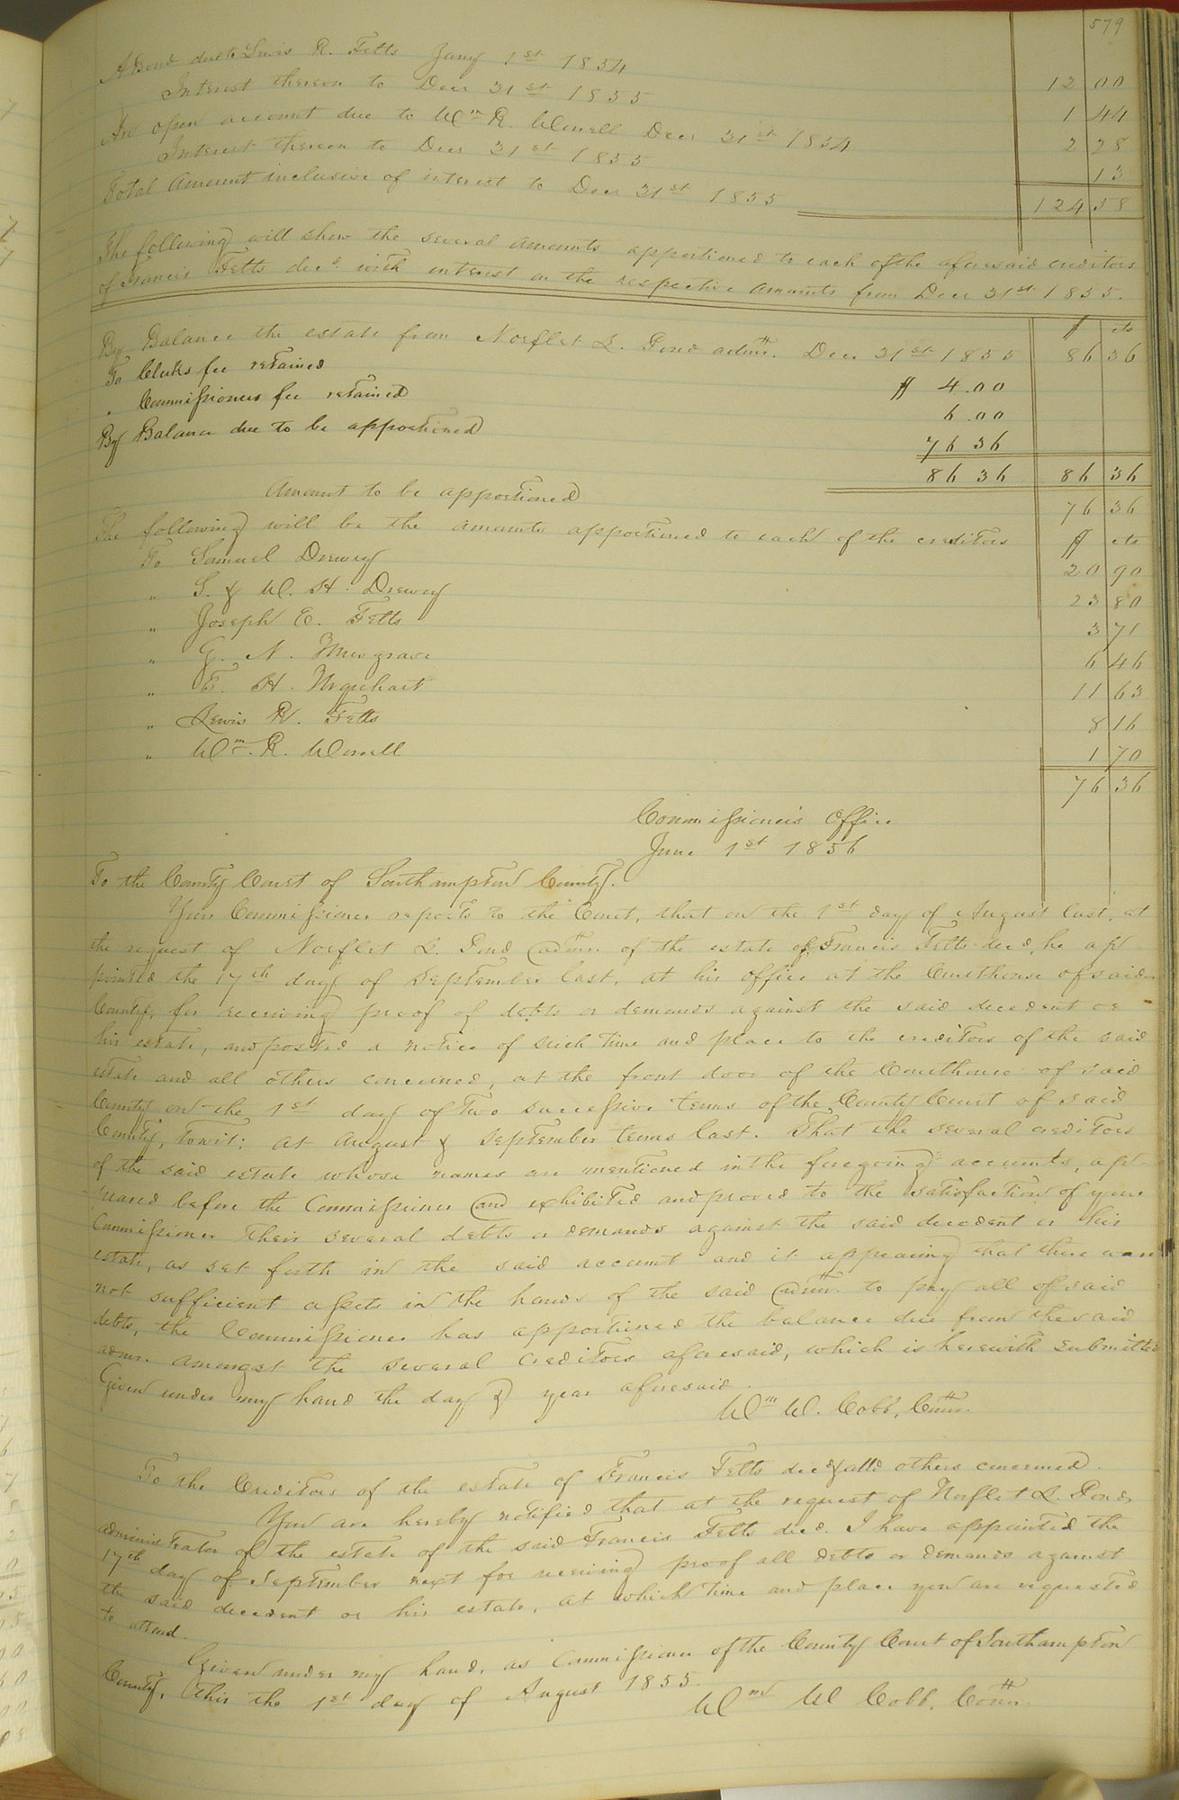 579
A Bond due to Lewis R. Fetts Jany 1st 1854 12 00
Interest thereon to Decr 31st 1855 1 44
An open account due to Wm R. Worrell Decr 31st 1854 2 28
Interest thereon to Decr 31st 1855 13
Total Amount inclusive of interest to Decr 31st 1855 124 58
The following will show the several amounts apportioned to each of the aforesaid creditors
of Francis Fetts decd with interest on the respective amounts from Decr 31st 1855.
$ cts
By Balance the estate from Norflet L. Pond admr. Decr 31st 1855 86 36
To Clerks fee retained $ 4.00
" Commissioners fee retained 6.00
By Balance due to be apportioned 76 36
86 36 86 36
Amount to be apportioned 76 36
The following will be the amounts apportioned to each of the creditors $ cts
To Samuel Drewry 20 90
" S. & W. H. Drewry 23 80
" Joseph E. Fetts 3 71
" G. N. Musgrave 6 46
" E. H. Urquhart 11 63
" Lewis R. Fetts 8 16
" Wm. R. Worrell 1 70
76 36
Commissioner's Office
June 1st 1856
To the County Court of Southampton County.
Your Commissioner reports to the Court, that on the 1st day of August last, at
the request of Norflet L. Pond admr. of the estate of Francis Fetts decd, he ap
pointed the 17th day of September last, at his office at the Courthouse of said
County, for receiving proof of debts or demands against the said decedent or
his estate, and posted a notice of such time and place to the creditors of the said
estate and all others concerned, at the front door of the Courthouse of said
County on the 1st day of two successive terms of the County Court of said
County, towit: at August & September terms last. That the several creditors
of the said estate whose names are mentioned in the foregoing accounts, ap
peared before the Commissioner and exhibited and proved to the satisfaction of your
Commissioner their several debts or demands against the said decedent or his
estate, as set forth in the said account and it appearing that there were
not sufficient assets in the hands of the said admr. to pay all of said
debts, the Commissioner has apportioned the balance due from the said
admr. amongst the several creditors aforesaid, which is herewith submitted
Given under my hand the day & year aforesaid.
Wm W. Cobb, Comr.
To the Creditors of the estate of Francis Fetts decd & all others concerned.
You are hereby notified that at the request of Norflet L. Pond
administrator of the estate of the said Francis Fetts decd. I have appointed the
17th day of September next for receiving proof all debts or demands against
the said decedent or his estate, at which time and place you are requested
to attend.
Given under my hand, as Commissioner of the County Court of Southampton
County, this the 1st day of August 1855.
Wm W Cobb, Comr.